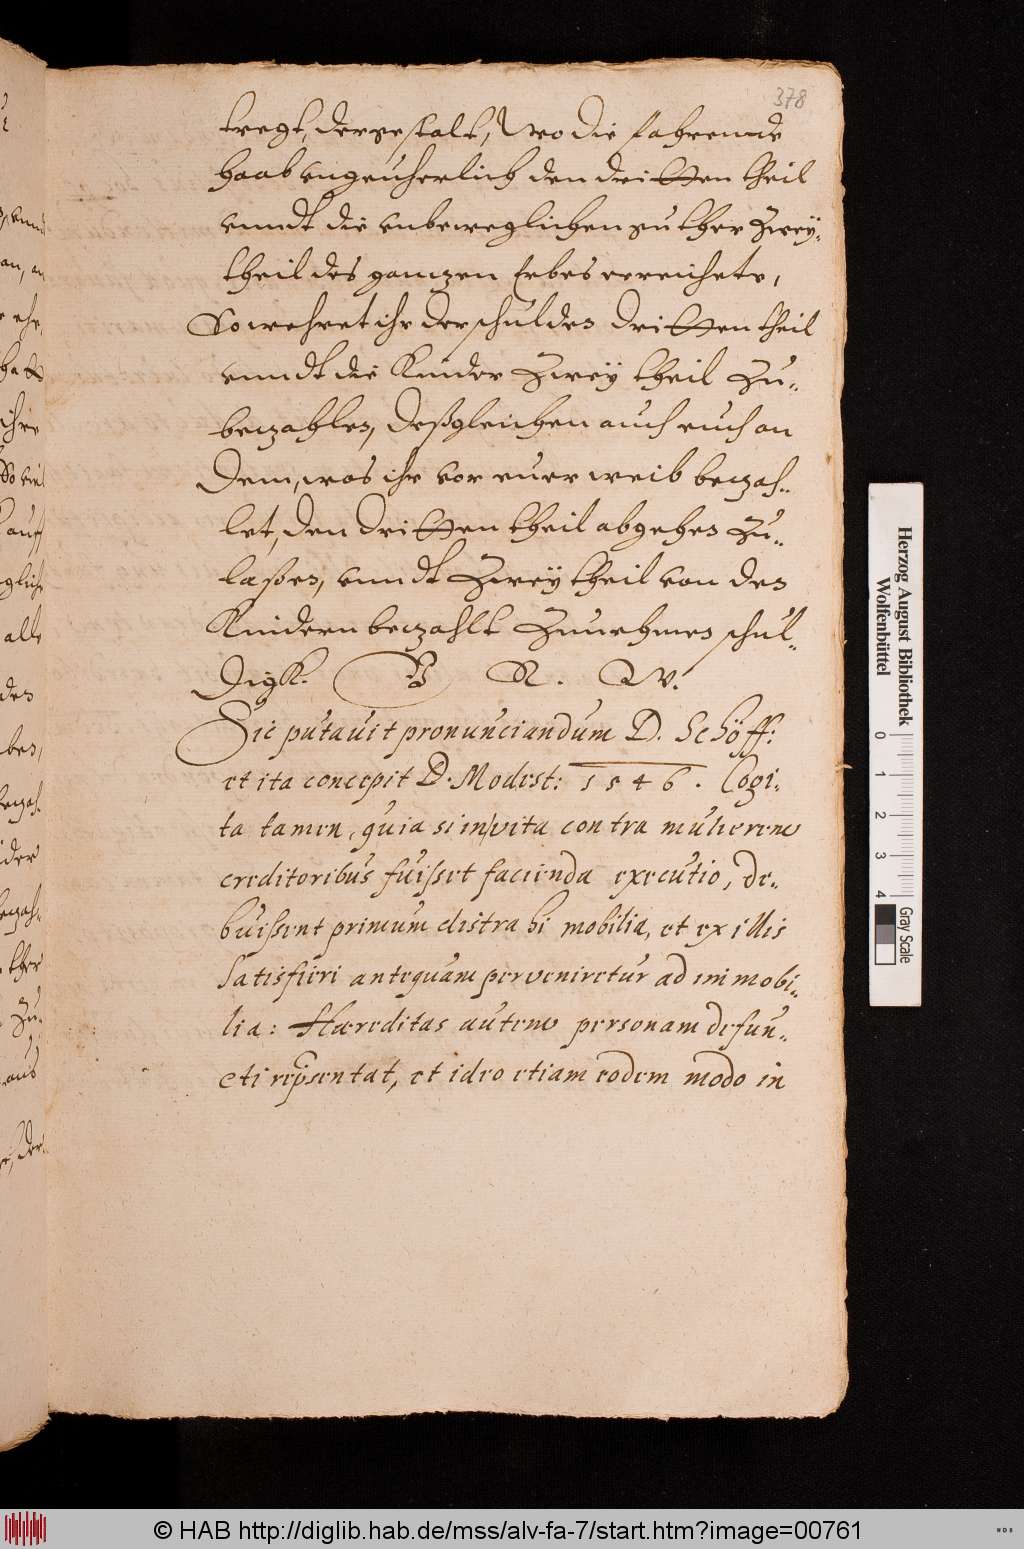 378
tregt, dergestalt, Wo die fahrende
haab ungeuherlich den dritten theil
unndt die unbeweglichen gu ther Zwey-
theil des gantzen Erbes erreichete,
So wehret ihr der schulden dritten theil
unndt die Kinder Zwey theil Zu-
bezahlen, deßgleichen auch euch an
dem, was ihr vor euer weib bezah-
let, den dritten theil abgehen Zu-
laßen, unndt Zwey theil von den
Kindern bezahlt Zunehmen schul-
digk. V R. W.
Sic putauit pronunciandum D. Schöff:
et ita concepit D. Modest: 1546. Cogi-
ta tamen, quia si invita contra mulierem
creditoribus fuisset facienda executio, de-
buissent primum distrahi mobilia, et ex illis
satisfieri antequam perveniretur ad immobi-
lia: Haereditas autem personam defun-
cti repsentat, et ideo etiam eodem modo in
Herzog August Bibliothek
Wolfenbüttel
0 1 2 3 4
Gray Scale
© HAB http://diglib.hab.de/mss/alv-fa-7/start.htm?image=00761